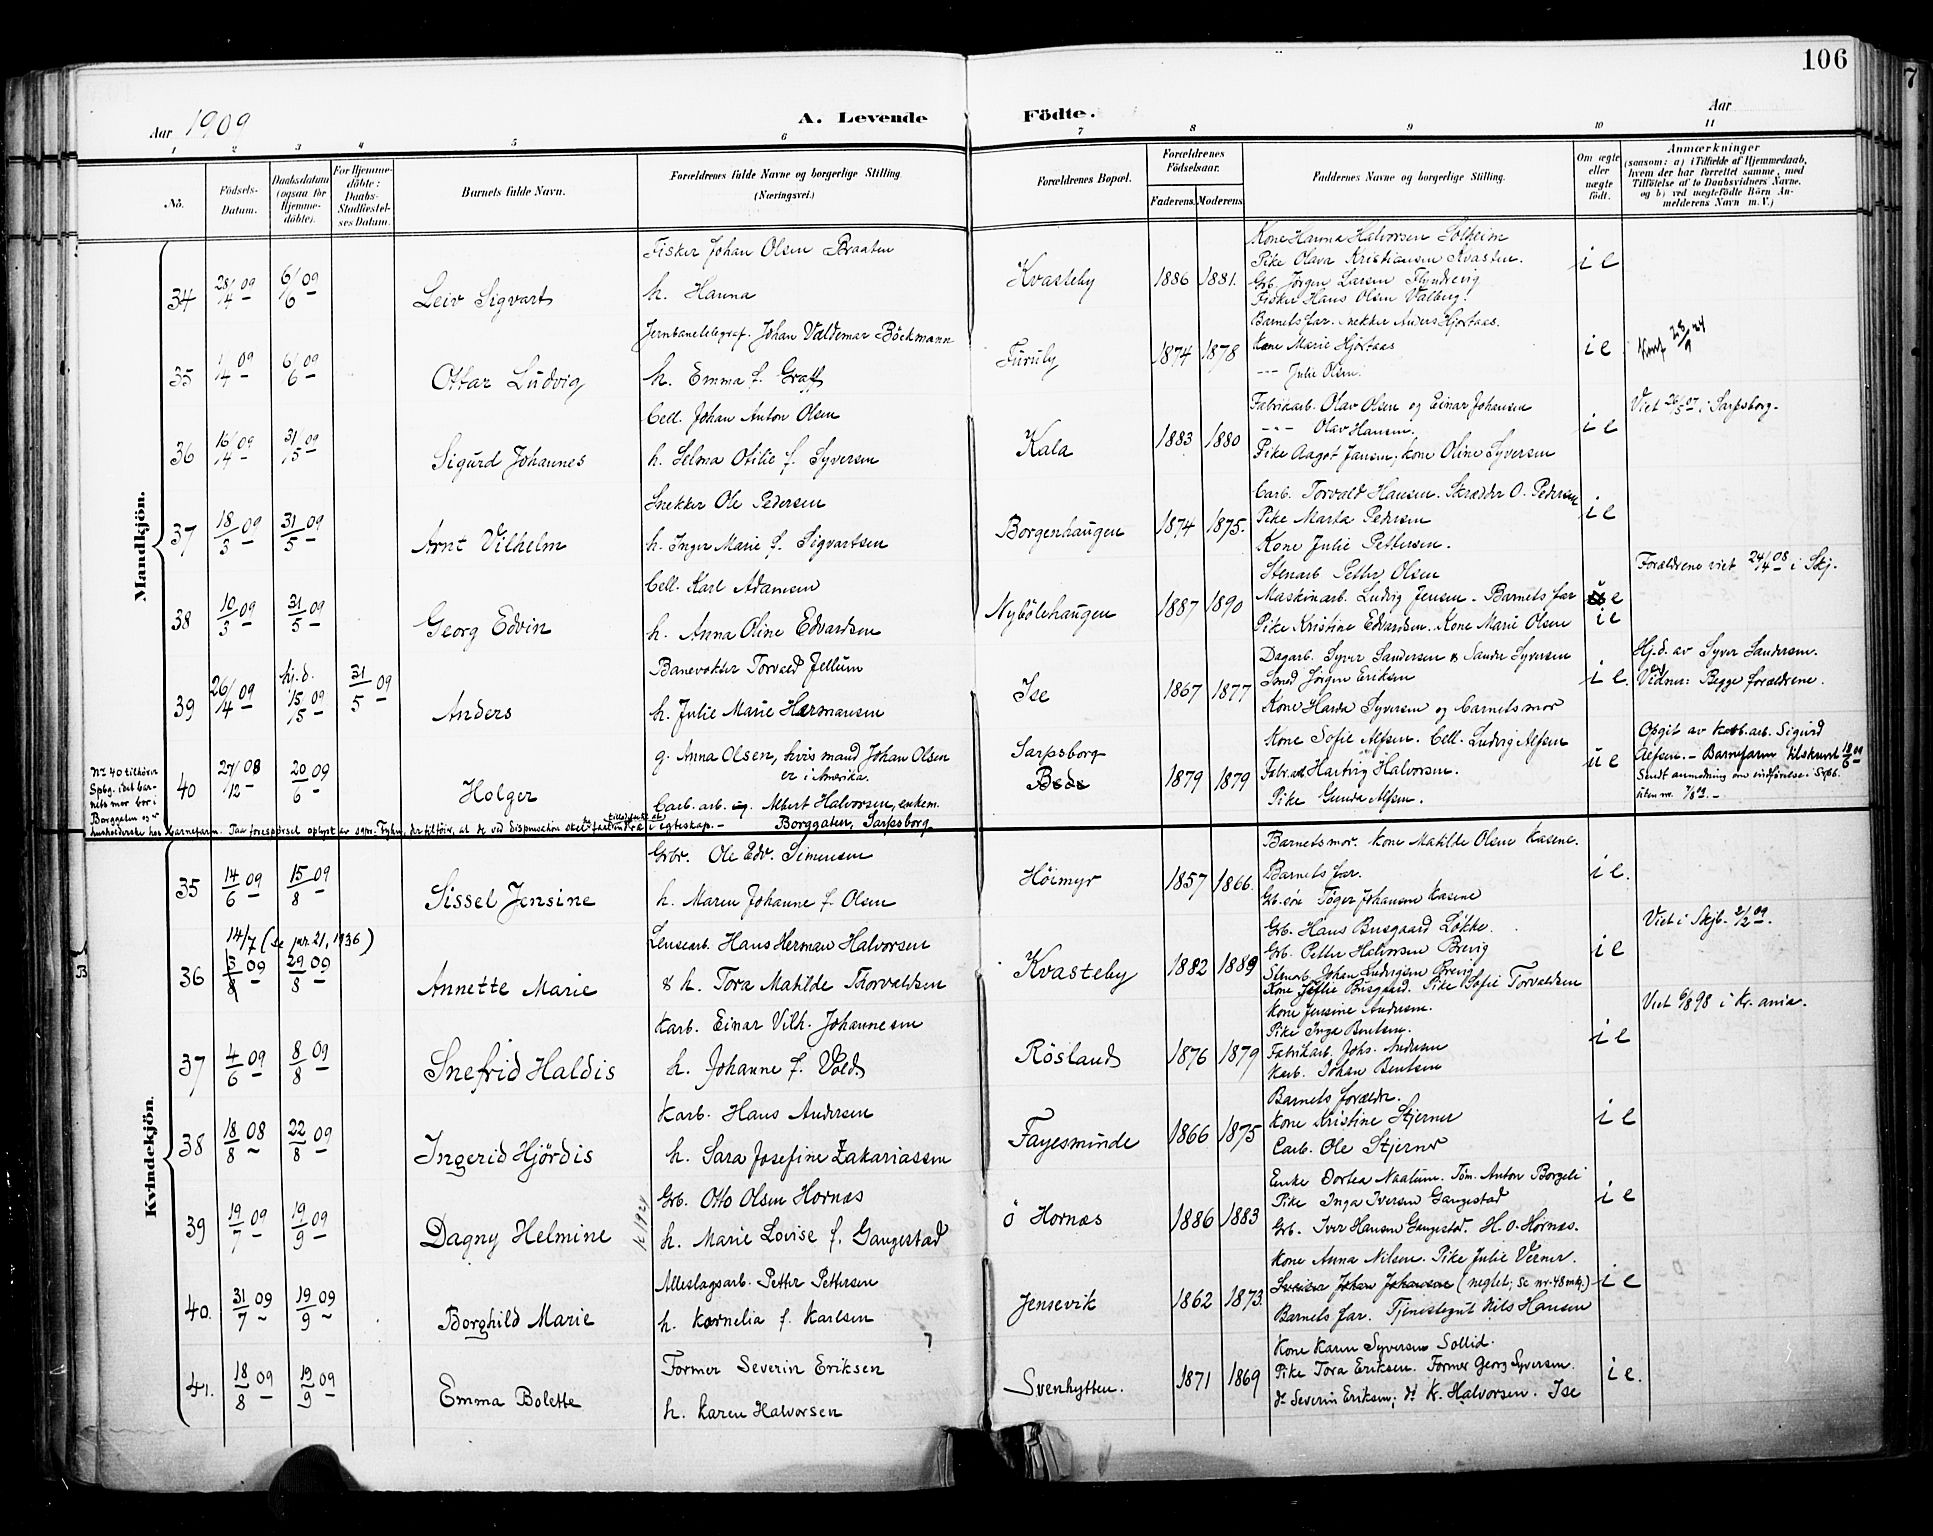 106
Aar 1909
A. Levende Födte.
Aar
1 2 3 4 5 6 7 8 9 10 11
No.
Födsels-Datum.
Daabsdatum (ogsaa for Hjemme-döbte).
For Hjemme-döbte: Daabs-Stadfæstel-ses Datum.
Barnets fulde Navn.
Forældrenes fulde Navne og borgerlige Stilling (Næringsvei.)
Forældrenes Bopæl.
Forældrenes Födselsaar.
Faderens. Moderens
Faddernes Navne og borgerlige Stilling.
Om ægte eller uægte födt.
Anmærkninger (saasom: a) i Tilfælde af Hjemmedaab, hvem der har forrettet samme, med Tilföielse af to Daabsvidners Navne, og b) ved uægtefödte Börn An-melderens Navn m. V.)
Mandkjön.
34 28/4 09 6/6 09 Leiv Sigvart
Fisker Johan Olsen Braaten
h. Hanna
Kvasteby 1886 1881.
Kone Hanna Halvorsen Solheim
Pike Olava Kristiansen Kvasten.
Grb. Jörgen Larsen Flyndrevig
Fisker Hans Olsen Valberg.
i e
35 1/4 09 6/6 09 Ottar Ludvig
Jernbanetelegraf. Johan Valdemar Böckmann
h. Emma f. Graff
Furuly 1874 1878
Barnets far. Snekker Anders Hjortaas.
Kone Marie Hjortaas
--- Julie Olsen.
i e
Konf 28/9 24
36 16/4 09 31/5 09 Sigurd Johannes
Cell. Johan Anton Olsen
h. Selma Otilie f. Syversen
Kala 1883 1880
Fabrikarb. Olav Olsen og Einar Johansen
--- Olav Hansen.
Pike Aagot Jansen, kone Oline Syversen
i e
Viet 26/5 07 i Sarpsborg.
37 18/3 09 31/5 09 Arnt Vilhelm
Snekker Ole Pedersen
h. Inger Marie f. Sigvartsen
Borgenhaugen 1874 1875.
Carb. Torvald Hansen. Skrædder O. Pedersen
Pike Marta Pedersen
Kone Julie Pettersen.
i e
38 10/3 09 31/5 09 Georg Edvin
Cell. Karl Adamsen
h. Anna Oline Edvardsen
Nybölehaugen 1887 1890
Stenarb Petter Olsen
Maskinarb. Ludvig Jensen - Barnets far
Pike Kristine Edvardsen. Kone Marie Olsen
i e
Forældrene viet 24/4 08 i Skj.
39 26/4 09 hj.d. 15/5 09 31/5 09 Anders
Banevokter Torvald Jellum
h. Julie Marie Hermansen
Ise 1867 1877
Dagarb. Syver Sandersen & Sander Syversen
Smed Jörgen Eriksen
Kone Harda Syversen og barnets mor
i e.
Hj.d. av Syver Sandersen.
Vidner: Begge forældrene.
40 27/12 08 20/6 09 Holger
g. Anna Olsen, hvis mand Johan Olsen
er i Amerika.
Carb. arb. ug. Albert Halvorsen, enkem.
Borggaten, Sarpsborg
Sarpsborg
Bede
1879 1879
Kone Sofie Alfsen. Cell. Ludvig Alfsen
Fabr. arb Hartvig Halvorsen.
Pike Gunda Alfsen.
u e
Opgit av karb. arb. Sigurd
Alfsen. - Barnefaren tilskrevt 18/6 09
Sendt anmeldning om indförelse i Spbg.
uten nr. 7/8 09. -
Nr. 40 tilhörer
Spbg. idet bar-
nets mor bor i
Borggaten og er
husholderske hos barnefaren. Paa forespörsel oplyst av sgpr. Tyhn, der tilföier, at de ved dispensation skal ha tilladelse at indtræ i egteskap. -
Kvindekjön.
35 14/6 09 15/8 09 Sissel Jensine
Grbr. Ole Edv. Simensen
h. Maren Johanne f. Olsen
Höimyr 1857 1866.
Barnets mor. Kone Matilde Olsen Kasene.
Barnets far.
Grb. Töger Johansen Kasene
i e.
14/7 (se jnr. 21, 1936)
36 3/8 09 29/8 09 Annette Marie
Lensearb. Hans Herman Halvorsen
& h. Tora Matilde Thorvaldsen
Kvasteby 1882 1889
Grb. Hans Busgaard Lökke.
Grb. Petter Halvorsen Brevig
Stenarb. Johan Ludvigsen Brevig
Kone Julie Busgaard. Pike Sofie Torvaldsen
i e
Viet i Skjb. 2/2 09.
37 4/6 09 8/8 09 Snefrid Haldis
Karb. Einar Vilh. Johannesen
h. Johanne f. Vold
Rösland 1876 1879
Kone Jensine Andersen.
Pike Inga Bentsen.
Fabrikarb. Johs. Andersen
Karb. Johan Bentsen
i e
Viet 6/8 98 i Kr.ania.
38 18/8 08 22/8 09 Ingerid Hjördis
Karb. Hans Andersen
h. Sara Josefine Zakariassen
Fayesminde 1866 1875
Barnets forældre.
Kone Kristine Stjerner
Carb. Ole Stjerner
i e
39 19/7 09 19/9 09 Dagny Helmine
K 1924
Grb. Otto Olsen Hornæs
h. Marie Lovise f. Gangestad
Ö Hornæs 1886 1883
Enke Dortea Naalum. Töm. Anton Borgeli
Pike Inga Iversen Gangestad
Grb. Iver Hansen Gangestad. H. O. Hornæs.
i e
40. 31/7 09 19/9 09 Borghild Marie
Alleslagsarb. Petter Pettersen
h. Kornelia f. Karlsen
Jensevik 1862 1873.
Kone Anna Nilsen. Pike Julie Verner.
Johan Johansen (neglet; se nr. 48 mkj.)
Barnets far. Tjenestegut Nils Hansen
i e
41. 18/8 09 19/9 09 Emma Bolette
Former Severin Eriksen
h. Karen Halvorsen
Svenhytten. 1871 1869
Kone Karen Syversen Sollid.
Pike Tora Eriksen. Former Georg Syversen.
do Severin Eriksen; do K. Halvorsen. Ise
i e.